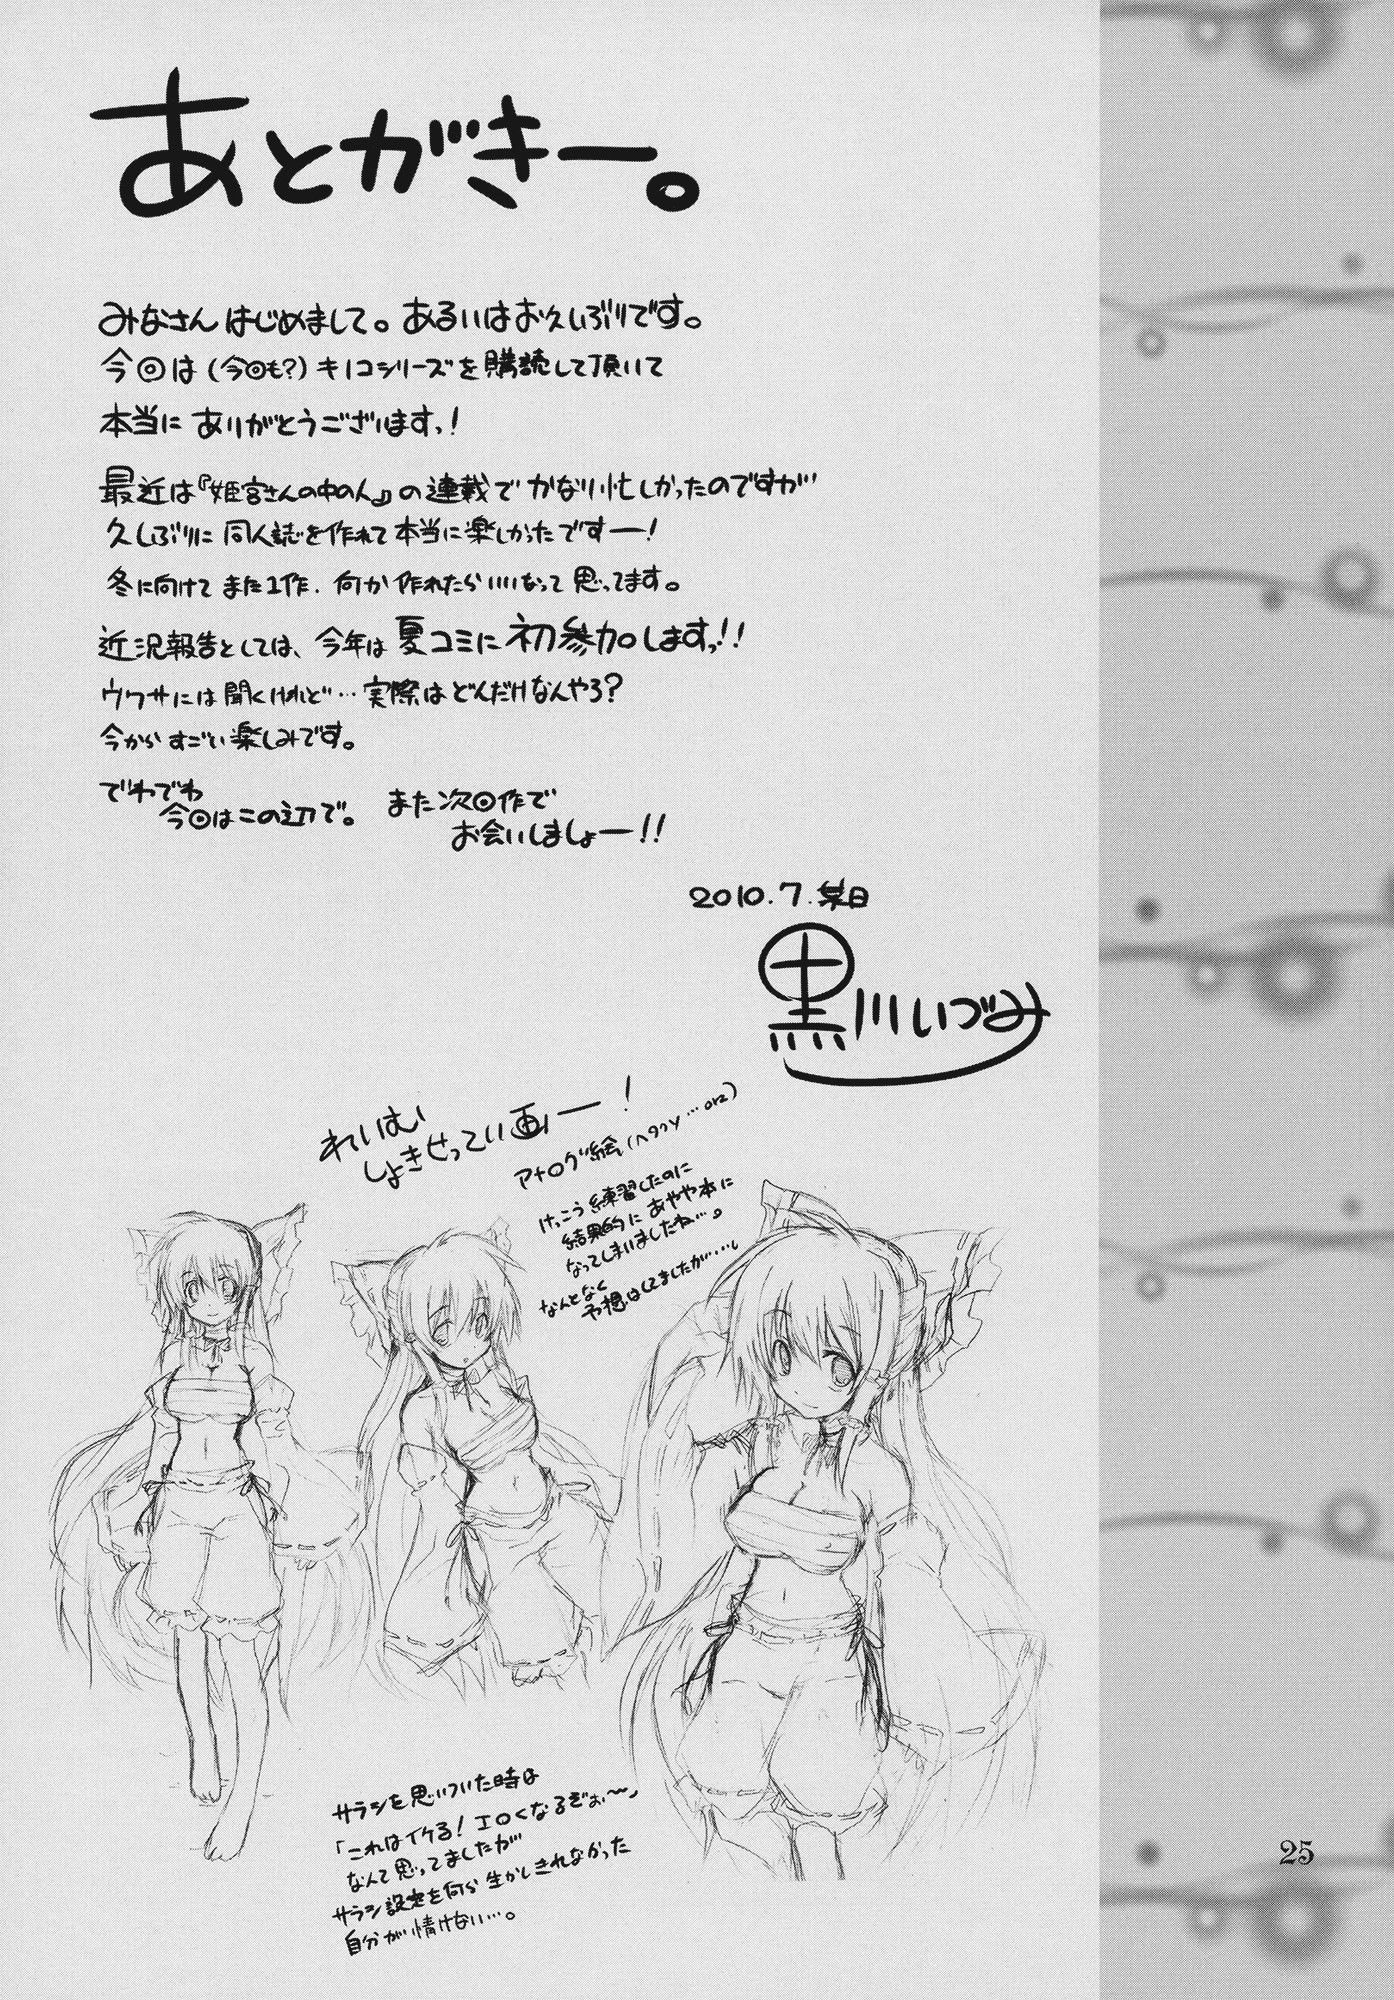 あとがきー。
みなさん はじめまして。あるいはお久しぶりです。
今回は(今回も?)キノコシリーズを購読して頂いて
本当に ありがとうございますっ!
最近は『姫宮さんの中の人』の連載で かなり忙しかったのですが
久しぶりに 同人誌を作れて 本当に楽しかったですー!
冬に向けて また1作. 何か 作れたらいいなって 思ってます。
近況報告としては、今年は 夏コミに 初参加しますっ!!
ウワサには 聞くけれど… 実際は どんだけなんやろ?
今から すごい楽しみです。
でわでわ
今回はこの辺で。
また次回作で
お会いしましょー!!
2010.7.某日
黒川いづみ
れいむ
しょきせってい画ー!
アナログ絵(ヘタクソ…orz)
けっこう練習したのに
結果的に あやや本に
なってしまいましたね…。
なんとなく
予想はしてましたが…。
サラシを思いついた時は
「これはイケる! エロくなるぞぉ〜」
なんて思ってましたが
サラシ設定を何ら 生かしきれなかった
自分が 情けない…。
25